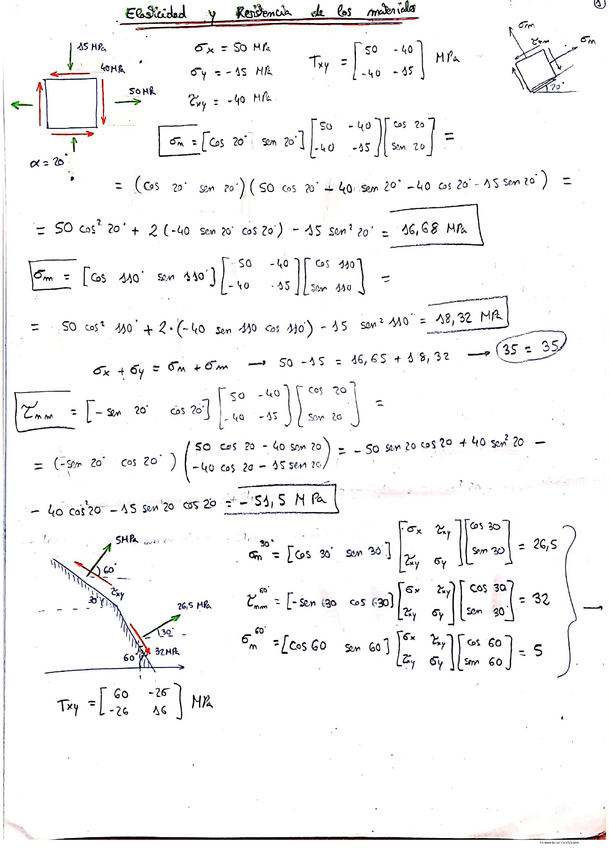 Elasticidad y Resistencia de los materiales
1
15 MPa
40MPa
50MPa
α = 20°
σx = 50 MPa
σy = -15 MPa
τxy = -40 MPa
Txy = [50 -40
-40 -15] MPa
σm
τnm
σm
20°
σm = [cos 20° sen 20°] [50 -40
-40 -15] [cos 20
sen 20] =
= (cos 20° sen 20°) (50 cos 20° - 40 sen 20° -40 cos 20° - 15 sen 20°) =
= 50 cos² 20° + 2 (-40 sen 20° cos 20°) - 15 sen² 20° = 16,68 MPa
σm = [cos 110° sen 110°] [50 -40
-40 -15] [cos 110
sen 110] =
= 50 cos² 110° + 2·(-40 sen 110 cos 110) - 15 sen² 110° = 18,32 MPa
σx + σy = σm + σm → 50 - 15 = 16,65 + 18,32 → 35 = 35
τnm = [-sen 20° cos 20°] [50 -40
-40 -15] [cos 20
sen 20] =
= (-sen 20° cos 20°) (50 cos 20 - 40 sen 20
-40 cos 20 - 15 sen 20) = - 50 sen 20 cos 20 + 40 sen² 20 -
- 40 cos² 20 - 15 sen 20 cos 20 = - 51,5 MPa
5MPa
60°
τxy
30°
26,5 MPa
130°
32MPa
60°
σm^30° = [cos 30° sen 30°] [σx τxy
τxy σy] [cos 30
sen 30] = 26,5
τnm^60° = [-sen 30 cos 30] [σx τxy
τxy σy] [cos 30
sen 30] = 32
σm^60° = [cos 60 sen 60] [σx τxy
τxy σy] [cos 60
sen 60] = 5
→
Txy = [60 -26
-26 16] MPa